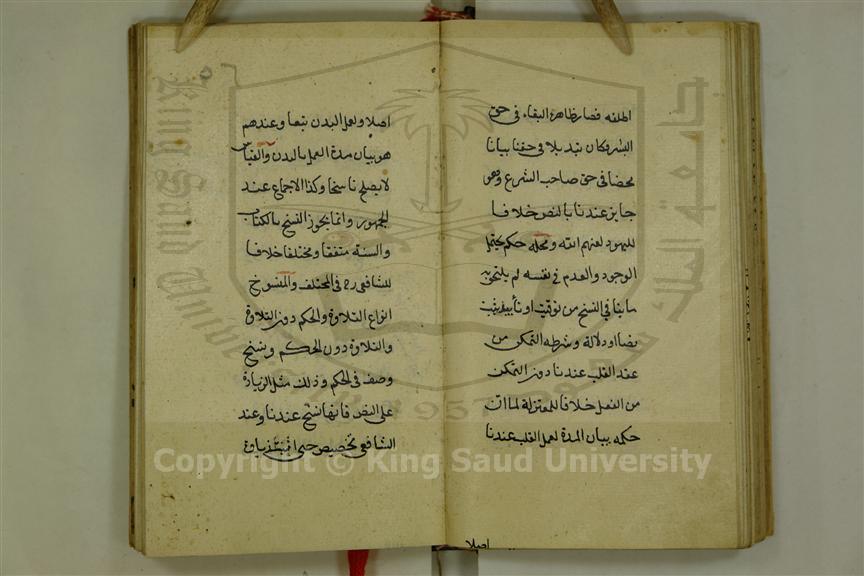 المنفه فصار ظاهره البقاء في حق
البشر فكان تبديلا في حقنا بيانا
محضا في حق صاحب الشرع وهو
جايز عندنا بالنص خلافا
لليهود لعنهم الله ومحله حكم يحتمل
الوجود والعدم في نفسه لم يلتحق به
ما ينافي النسخ من توقيت او تأبيد يثبت
نصا او دلالة وشرطه التمكن من
عقد القلب عندنا دون التمكن
من الفعل خلافا للمعتزلة لما ان
حكمه بيان المدة لعمل القلب عندنا
اصلا
اصلا ولعمل البدن تبعا وعندهم
هو بيان مدة العمل بالبدن والقياس
لا يصلح ناسخا وكذا الاجماع عند
الجمهور وانما يجوز النسخ بالكتاب
والسنة متفقا ومختلفا خلافا
للشافعي رح في المختلف والمنسوخ
انواع التلاوة والحكم دون التلاوة
والتلاوة دون الحكم ونسخ
وصف في الحكم وذلك مثل الزيادة
على النص فانها نسخ عندنا وعند
الشافعي تخصيص حتى اثبت زيادة
جامعة الملك سعود
King Saud University
1957
Copyright © King Saud University